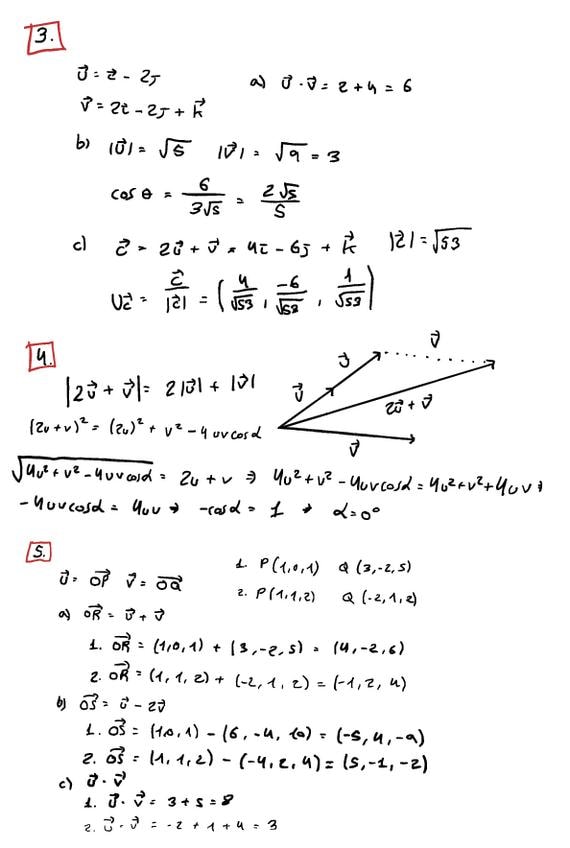 3.
u⃗ = i - 2j    a) u⃗ · v⃗ = 2 + 4 = 6
v⃗ = 2i - 2j + k⃗
b) |u⃗| = √5    |v⃗| = √9 = 3
cos θ = 6/(3√5) = 2√5/5
c) c⃗ = 2u⃗ + v⃗ = 4i - 6j + k⃗    |c⃗| = √53
Uc⃗ = c⃗/|c⃗| = (4/√53, -6/√53, 1/√53)
4.
|2u⃗ + v⃗| = 2|u⃗| + |v⃗|
(2u+v)² = (2u)² + v² - 4uvcosα
u⃗ u⃗ v⃗ 2u⃗ + v⃗ v⃗
√(4u² + v² - 4uvcosα) = 2u + v ⇒ 4u² + v² - 4uvcosα = 4u² + v² + 4uv ⇒
-4uvcosα = 4uv ⇒ -cosα = 1 ⇒ α = 0°
5.
u⃗ = OP⃗  v⃗ = OQ⃗    1. P(1,0,1)  Q(3,-2,5)
2. P(1,1,2)  Q(-2,1,2)
a) OR⃗ = u⃗ + v⃗
1. OR⃗ = (1,0,1) + (3,-2,5) = (4,-2,6)
2. OR⃗ = (1,1,2) + (-2,1,2) = (-1,2,4)
b) OS⃗ = u⃗ - 2v⃗
1. OS⃗ = (1,0,1) - (6,-4,10) = (-5,4,-9)
2. OS⃗ = (1,1,2) - (-4,2,4) = (5,-1,-2)
c) u⃗ · v⃗
1. u⃗ · v⃗ = 3 + 5 = 8
2. u⃗ · v⃗ = -2 + 1 + 4 = 3